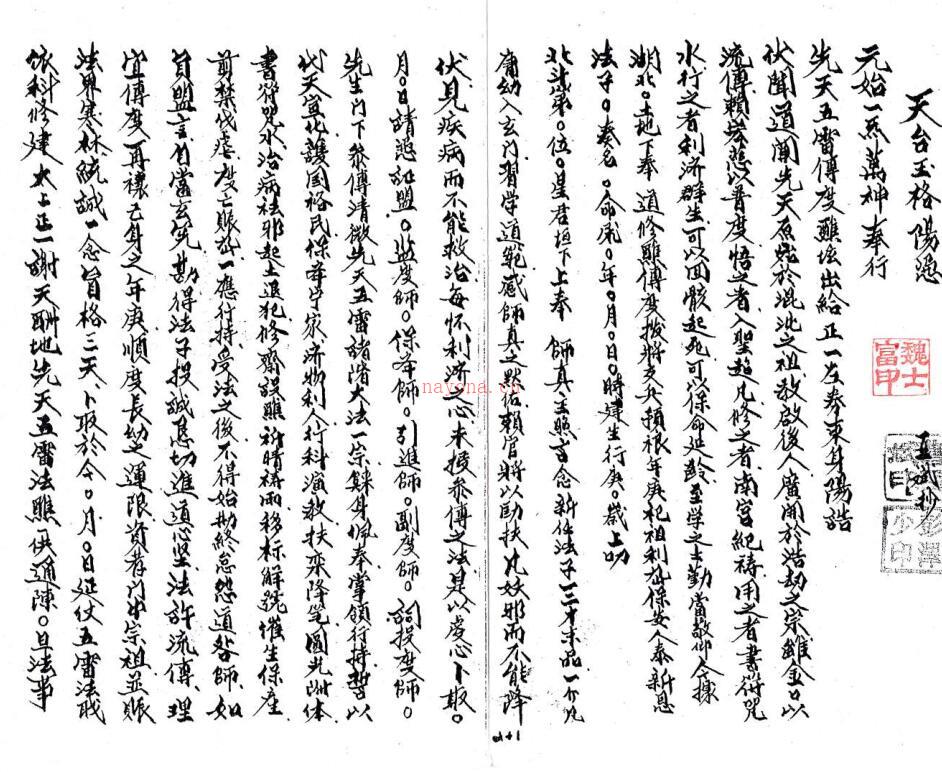 天台玉格陽憑
元始一炁萬神奉行
先天五雷傳度醮坛出給正一左奉東身陽誥
伏聞道闡先天原 於混沌之祖教啟後人廣開於浩劫之宗雖金口以
流傳賴 慈以普度悟道者入聖超凡修之者南宮紀禱用之者書併咒
水行之者利济群生可以回骸起死可以保命延龄至学之士勤當敬仰今據
湖北〇土地下奉 道修醮傳度撥將交兵 年庚 祖 保安人泰新恩
法子〇奏名〇命 〇年〇月〇日〇時建生行庚〇歲上叩
北斗第〇位〇星君垣下上奉 師真主照言念新任法子一三才末品一介凡
庸幼入玄门習学道範感師真之點佑賴官將以助扶凡妖邪而不能降
伏見疾病而不能救治每怀利济之心未授参傳之法是以虔心卜取〇
月〇日請憑証盟〇监度師〇保奉師〇引進師〇副度師〇 投度師〇
先生门下参傳清微先天五雷諸阶大法一宗 身佩奉掌領行持誓以
代天宣化護国裕民保 宁家济物利人行科演教扶乘降筆圓光附体
書符咒水治病祛邪起土退犯修齋設醮祈晴祷雨移标解 催生保產
剪禁伐 度亡賑孤一應行持受法之後不得始勤終怠怨道咎師如
自盟言自當玄 斯得法子投誠 切進道心坚法許流傳理
宜傳度一再禳己身之年庚順度長幼之運限資者门中宗祖並賑
法界寒林統誠一念旨格三天卜取於今〇月〇日延仗五雷法职
依科修建太上正一謝天酬地先天五雷法醮一供通陳〇旦法事
魏士富印
玉 抄
nayona.cn